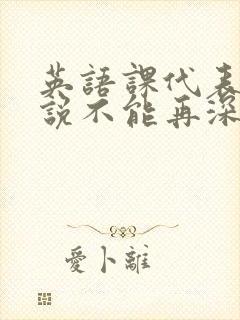 英語課代表
說不能再深
愛卜離